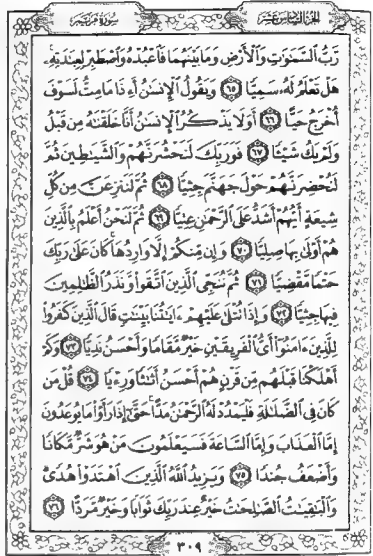 الجزء السادس عشر سورة مريم
رَّبُّ السَّمَٰوَٰتِ وَالْأَرْضِ وَمَا بَيْنَهُمَا فَاعْبُدْهُ وَاصْطَبِرْ لِعِبَٰدَتِهِۦ
هَلْ تَعْلَمُ لَهُۥ سَمِيًّا ٦٥ وَيَقُولُ الْإِنسَٰنُ أَءِذَا مَا مِتُّ لَسَوْفَ
أُخْرَجُ حَيًّا ٦٦ أَوَلَا يَذْكُرُ الْإِنسَٰنُ أَنَّا خَلَقْنَٰهُ مِن قَبْلُ
وَلَمْ يَكُ شَيْـًٔا ٦٧ فَوَرَبِّكَ لَنَحْشُرَنَّهُمْ وَالشَّيَٰطِينَ ثُمَّ
لَنُحْضِرَنَّهُمْ حَوْلَ جَهَنَّمَ جِثِيًّا ٦٨ ثُمَّ لَنَنزِعَنَّ مِن كُلِّ
شِيعَةٍ أَيُّهُمْ أَشَدُّ عَلَى الرَّحْمَٰنِ عِتِيًّا ٦٩ ثُمَّ لَنَحْنُ أَعْلَمُ بِالَّذِينَ
هُمْ أَوْلَىٰ بِهَا صِلِيًّا ٧٠ وَإِن مِّنكُمْ إِلَّا وَارِدُهَا كَانَ عَلَىٰ رَبِّكَ
حَتْمًا مَّقْضِيًّا ٧١ ثُمَّ نُنَجِّى الَّذِينَ اتَّقَوا وَّنَذَرُ الظَّٰلِمِينَ
فِيهَا جِثِيًّا ٧٢ وَإِذَا تُتْلَىٰ عَلَيْهِمْ ءَايَٰتُنَا بَيِّنَٰتٍ قَالَ الَّذِينَ كَفَرُوا
لِلَّذِينَ ءَامَنُوا أَىُّ الْفَرِيقَيْنِ خَيْرٌ مَّقَامًا وَأَحْسَنُ نَدِيًّا ٧٣ وَكَمْ
أَهْلَكْنَا قَبْلَهُم مِّن قَرْنٍ هُمْ أَحْسَنُ أَثَٰثًا وَرِءْيًا ٧٤ قُلْ مَن
كَانَ فِى الضَّلَٰلَةِ فَلْيَمْدُدْ لَهُ الرَّحْمَٰنُ مَدًّا حَتَّىٰ إِذَا رَأَوْا مَا يُوعَدُونَ
إِمَّا الْعَذَابَ وَإِمَّا السَّاعَةَ فَسَيَعْلَمُونَ مَنْ هُوَ شَرٌّ مَّكَانًا
وَأَضْعَفُ جُندًا ٧٥ وَيَزِيدُ اللَّهُ الَّذِينَ اهْتَدَوْا هُدًى
وَالْبَٰقِيَٰتُ الصَّٰلِحَٰتُ خَيْرٌ عِندَ رَبِّكَ ثَوَابًا وَخَيْرٌ مَّرَدًّا ٧٦
٣٠٩